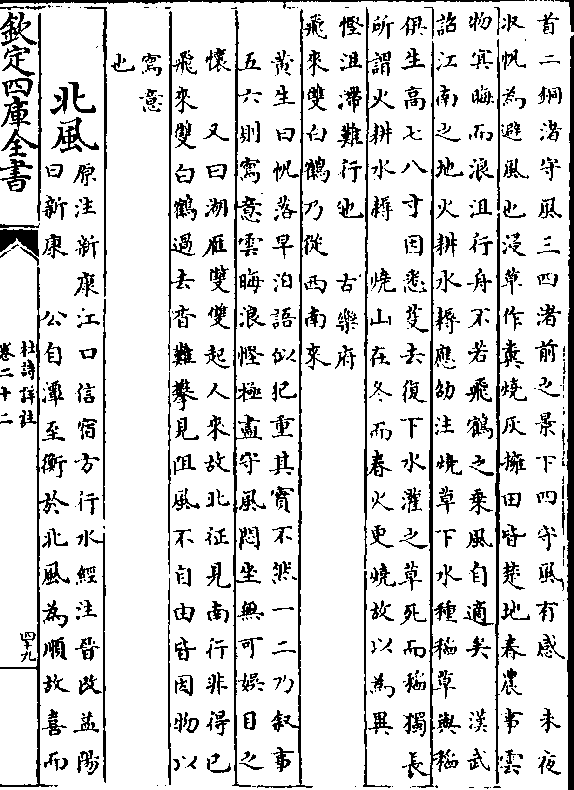 首二銅渚守風三四渚前之景下四守風有感　未夜
收帆為避風也浸草作糞燒灰擁田皆楚地春農事雲
物冥晦而浪沮行舟不若飛鶴之乗風自適矣　漢武
詔江南之地火耕水耨應劭注燒草下水種稲草與稲
俱生高七八寸因悉芟去復下水灌之草死而稲獨長
所謂火耕水耨　燒山在冬而春火更燒故以為異
慳沮滯難行也　古樂府
飛來雙白鶴乃從西南來
黄生曰帆落早泊語似犯重其實不然一二乃叙事
五六則寓意雲晦浪慳極盡守風悶坐無可娱目之
懷　又曰湖雁雙雙起人來故北征見南行非得已
飛來雙白鶴過去杳難攀見阻風不自由皆因物以
寓意
也
北風
原注新康江口信宿方行水經注晉改益陽
曰新康　公自潭至衡於北風為順故喜而
欽定四庫全書
杜詩詳註
卷二十二
四十九